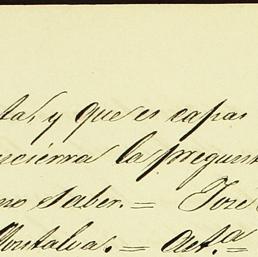 ta, y que es capas
encierra la pregunt
no saber. = José
Montalva. = Ast.a =